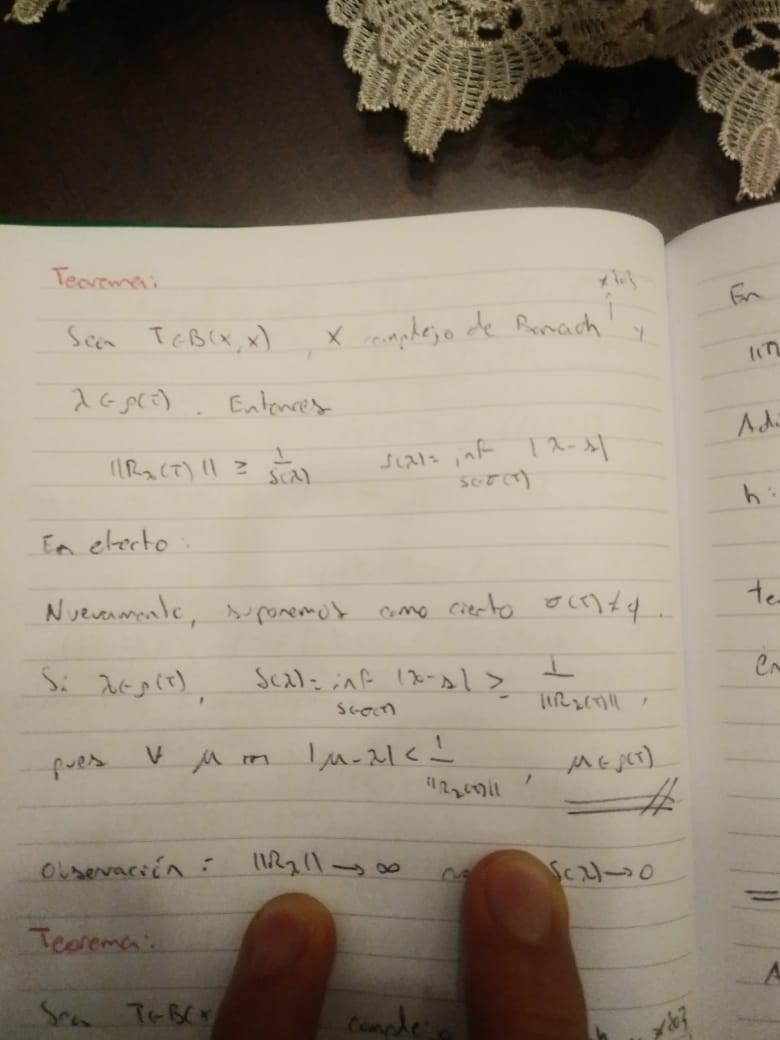 Teorema:
≠{0}
Sea T∈B(X,X), X complejo de Banach ↑ y
λ∈ρ(T). Entonces
||Rλ(T)|| ≥ 1/δ(λ) δ(λ)= inf |λ-s|
s∈σ(T)
En efecto:
Nuevamente, suponemos como cierto σ(T)≠φ.
Si λ∈ρ(T), δ(λ)= inf |λ-s| ≥ 1/||Rλ(T)||,
s∈σ(T)
pues ∀ μ con |μ-λ| < 1/||Rλ(T)||, μ∈ρ(T)
Observación: ||Rλ|| → ∞ δ(λ)→0
Teorema:
Sea T∈B(X
≠{0}
En
Adi
h: